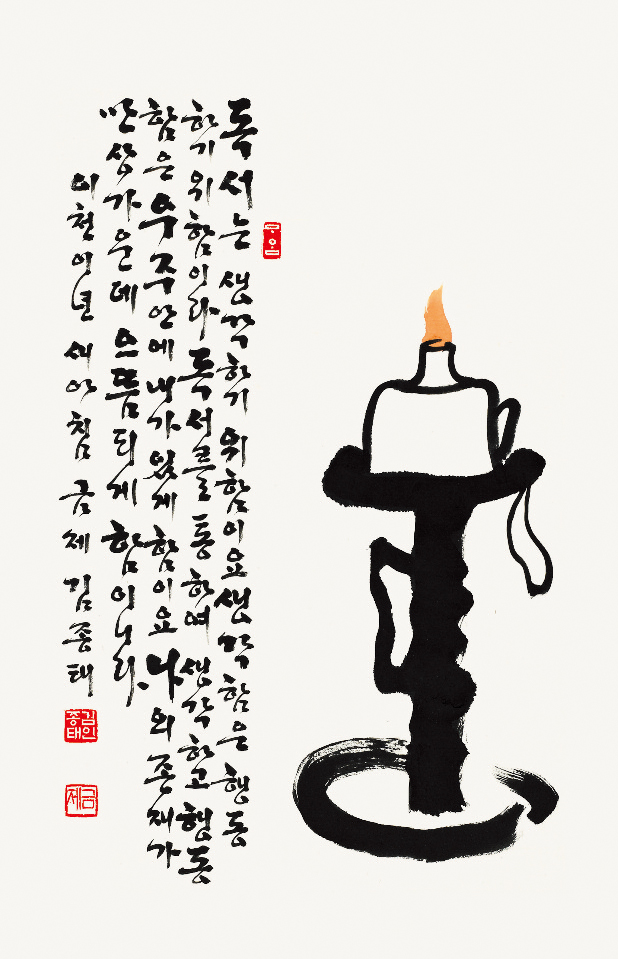 독서는 생각하기 위함이요 생각함은 행동
하기 위함이라 독서를 통하여 생각하고 행동
함은 우주안에 내가 있게 함이요 나의 존재가
만상 가운데 으뜸되게 함이니라.
이천이년 새아침 금제 김종태
김인
종태
금제